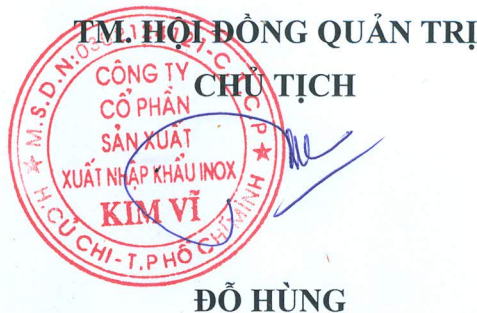 TM. HỘI ĐỒNG QUẢN TRỊ
CHỦ TỊCH
CÔNG TY
CỔ PHẦN
SẢN XUẤT
XUẤT NHẬP KHẨU INOX
KIM VĨ
M.S.D.N:
H. CỦ CHI - T.P HỒ CHÍ MINH
ĐỖ HÙNG